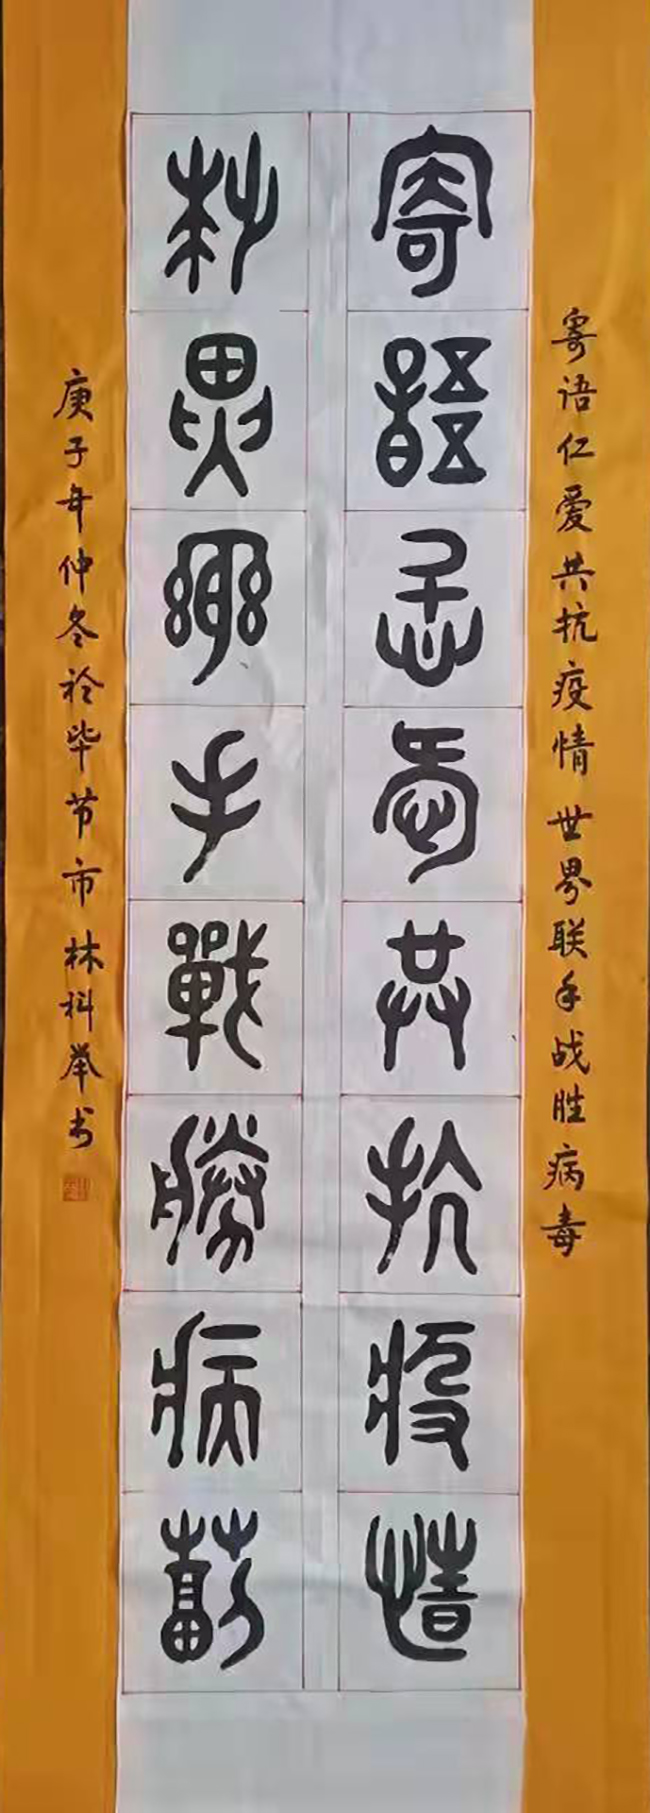 寄语仁爱共抗疫情世界联手战胜病毒
寄語仁愛共抗疫情
世界聯手戰勝病毒
庚子年仲冬於毕节市林科举书